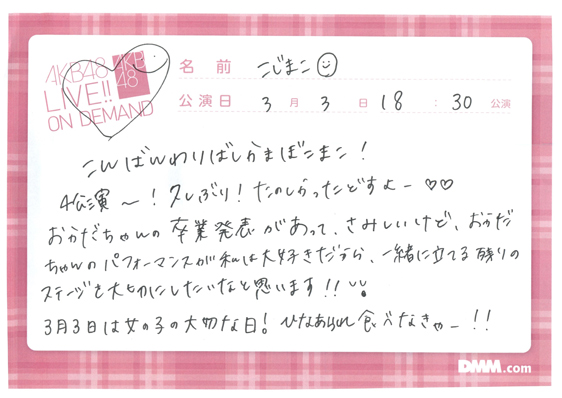 AKB48
LIVE!!
ON DEMAND
AKB
48
名前 こじまこ
公演日 3月3日 18:30公演
こんばんわりばしかまぼこまこ！
4公演〜！久しぶり！たのしかったどすよー♡♡
おかだちゃんの卒業発表があって、さみしいけど、おかだ
ちゃんのパフォーマンスが私は大好きだから、一緒に立てる残りの
ステージを大切にしたいなと思います！！
3月3日は女の子の大切な日！ひなあられ食べなきゃー！！
DMM.com